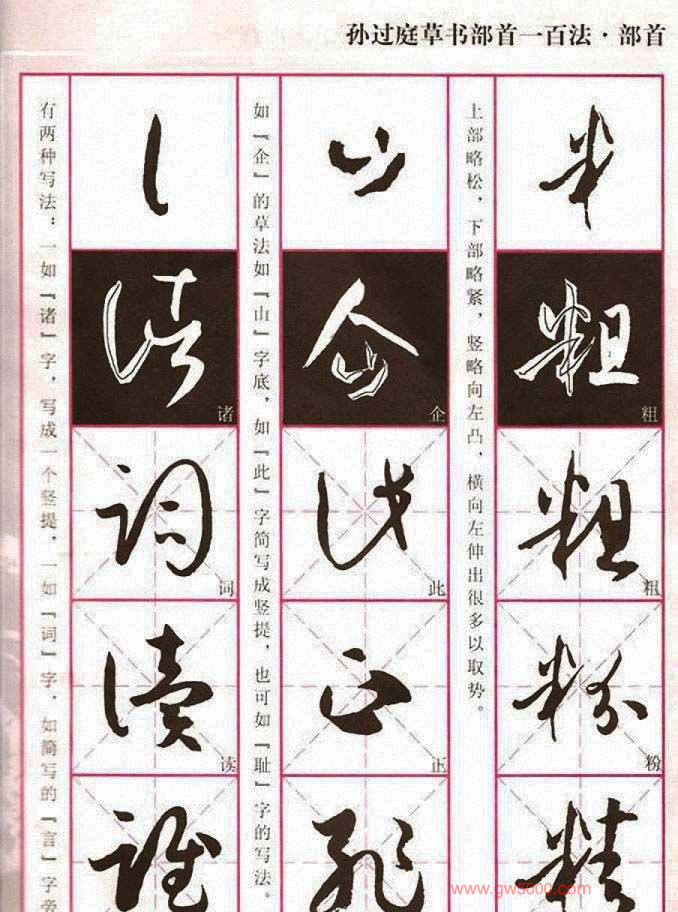 孙过庭草书部首一百法·部首
上部略松，下部略紧，竖略向左凸，横向左伸出很多以取势。
粗
粗
粉
如『企』的草法如『山』字底，如『此』字简写成竖提，也可如『耻』字的写法。
企
此
正
有两种写法：一如『诸』字，写成一个竖提，一如『词』字，如简写的『言』字旁
诸
词
读
www.gw5000.com